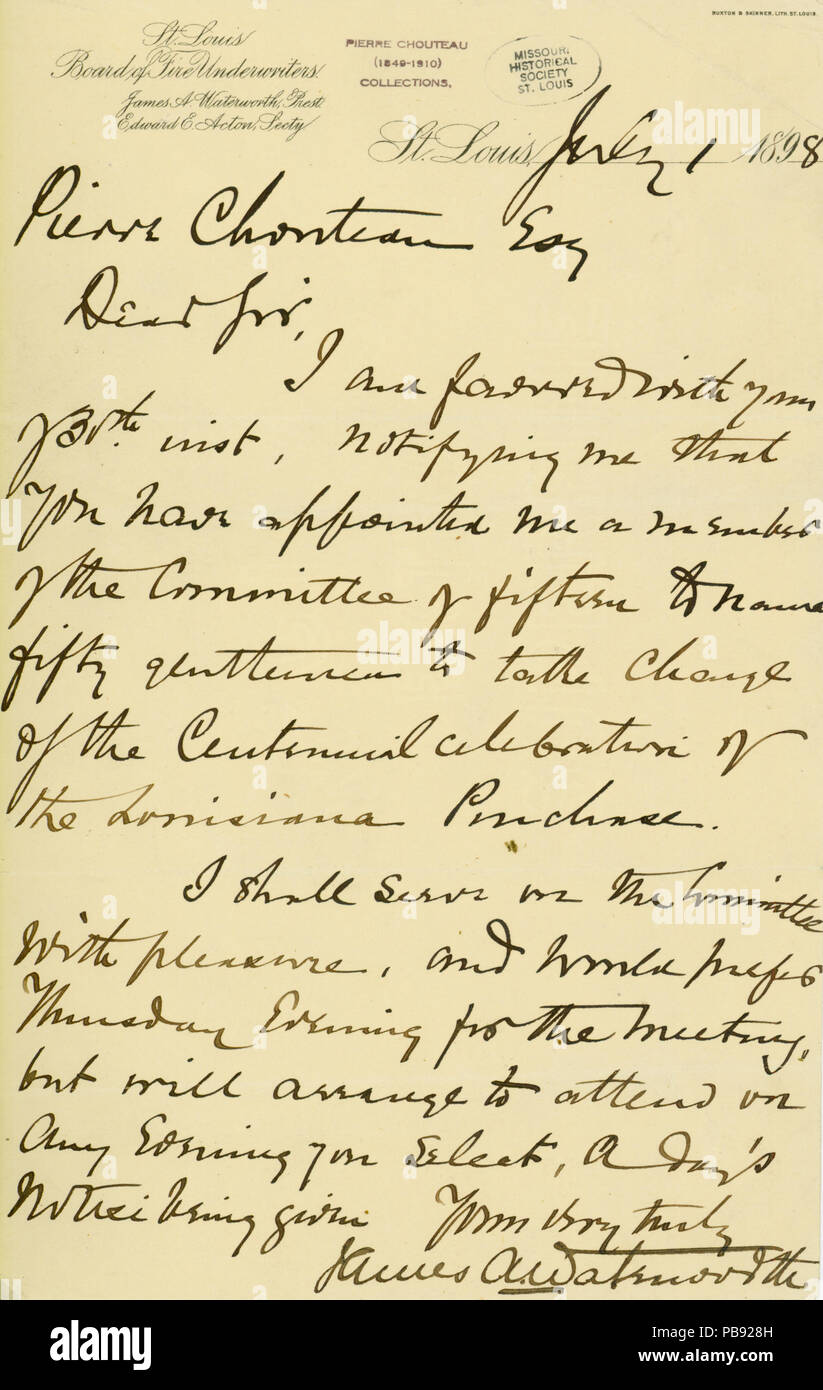 BUXTON & SKINNER, LITH. ST. LOUIS.
St. Louis
Board of Fire Underwriters.
James A. Waterworth, Prest.
Edward E. Acton, Secty.
PIERRE CHOUTEAU
(1849-1910)
COLLECTIONS.
MISSOURI
HISTORICAL
SOCIETY
ST. LOUIS
St. Louis, July 1 1898
Pierre Chouteau Esq
Dear Sir,
I am favored with your
of 30th inst, notifying me that
you have appointed me a member
of the Committee of fifteen to name
fifty gentlemen to take charge
of the Centennial celebration of
the Louisiana Purchase.
I shall serve on the Committee
with pleasure, and would prefer
Thursday Evening for the meeting,
but will arrange to attend on
any Evening you Select, a day's
notice being given Yours very truly
James A. Waterworth
alamy
alamy stock photo
PB928H
www.alamy.com